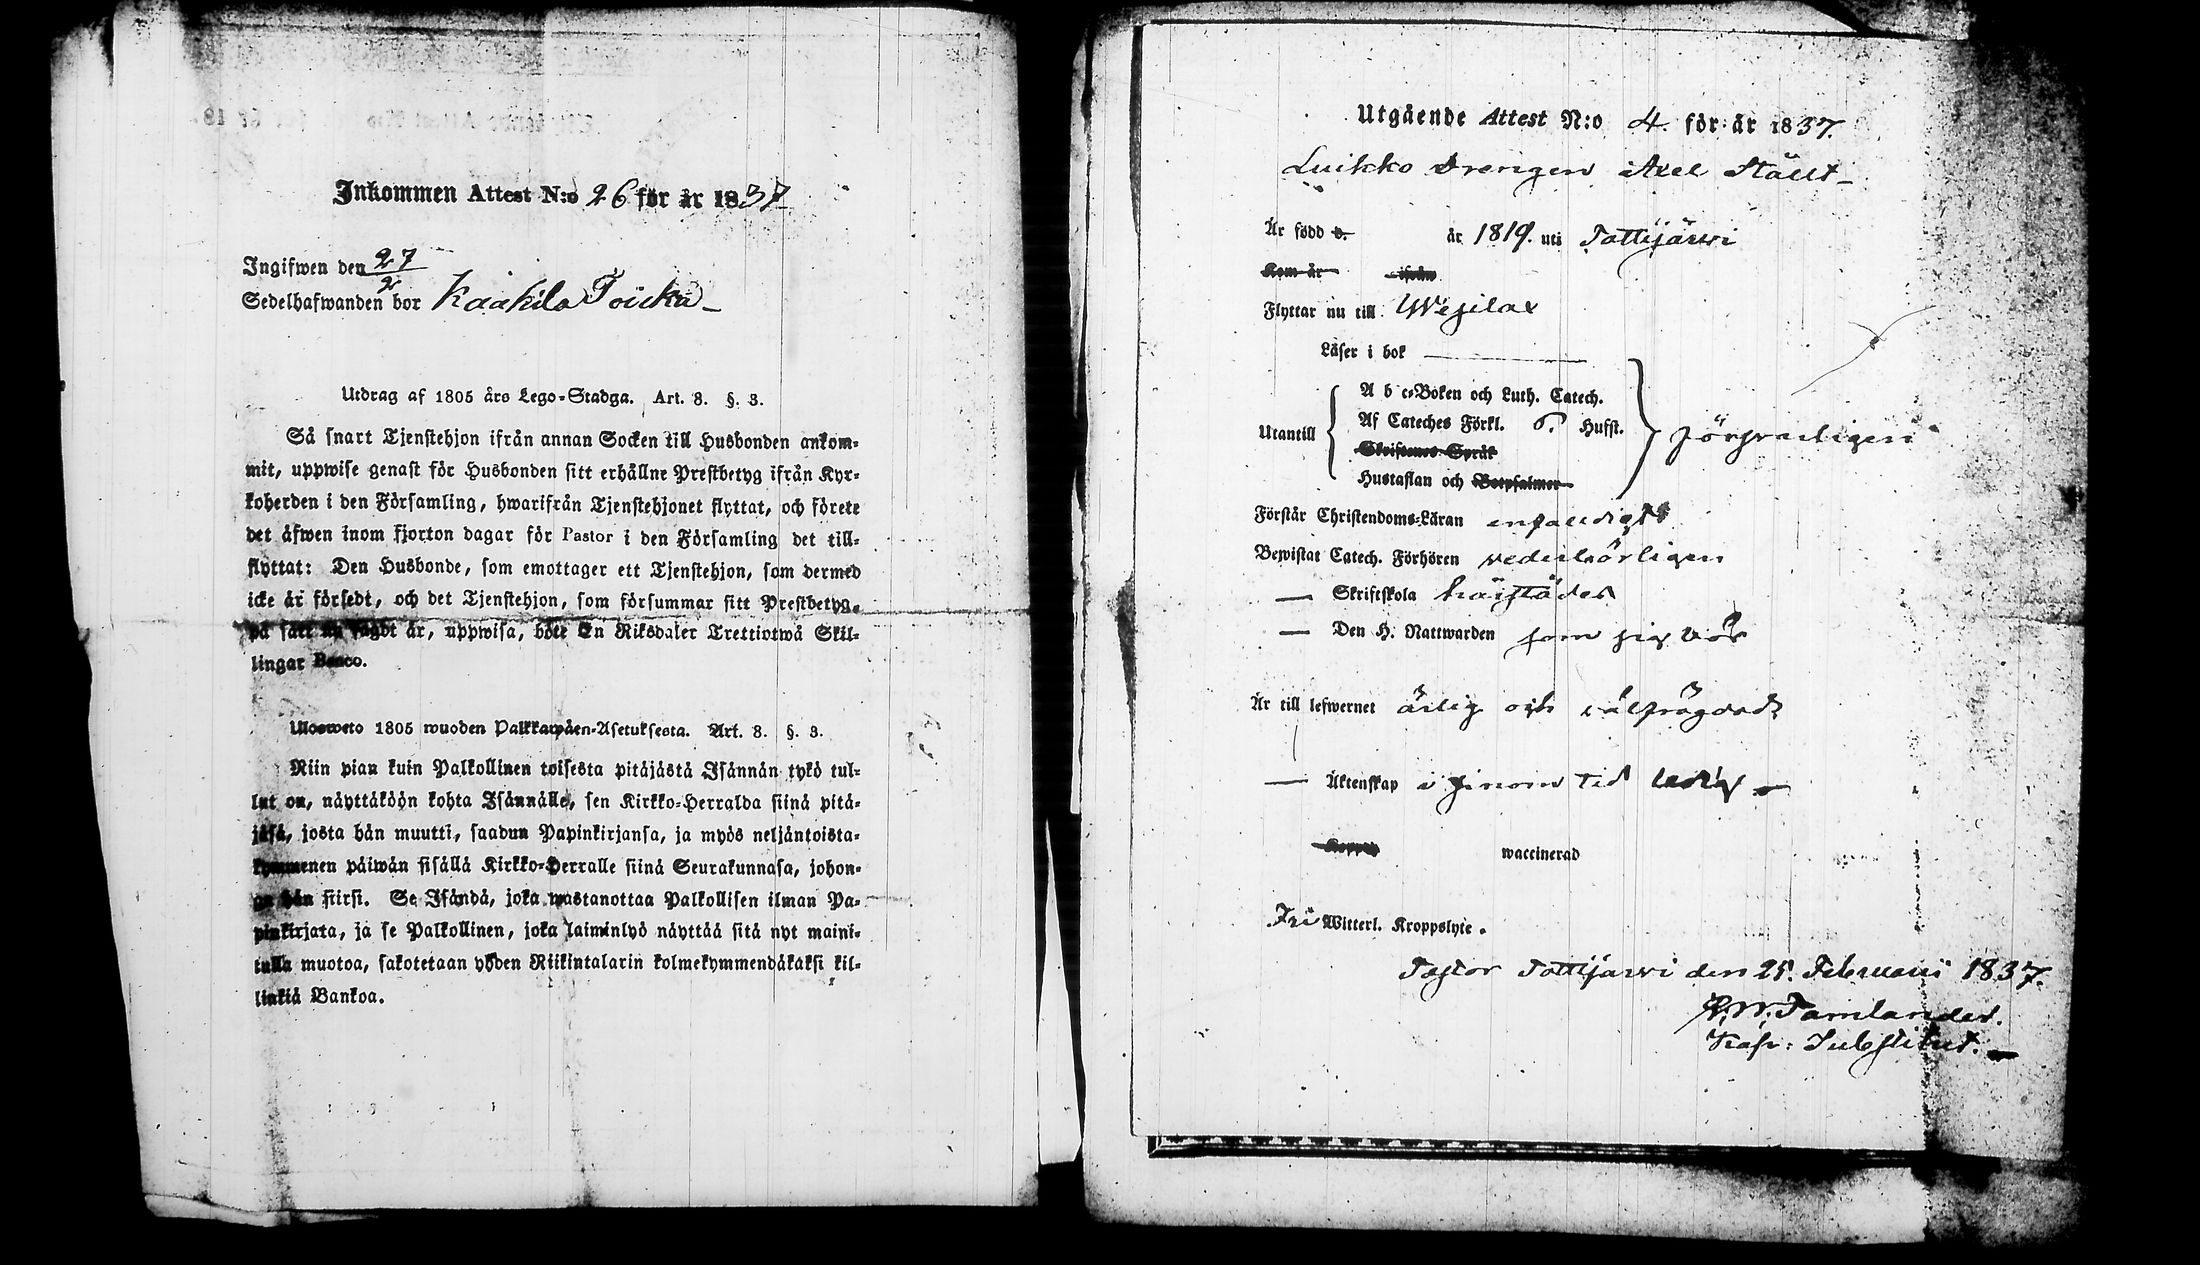 Inkommen Attest N:o 26 för år 1837
Ingifwen den 27/2
Sedelhafwanden bor Kaakila Toicka
Utdrag af 1805 års Lego-Stadga. Art. 8. §. 3.
Så snart Tjenstehjon ifrån annan Socken till Husbonden ankom-
mit, uppwise genast för Husbonden sitt erhållne Prestbetyg ifrån Kyr-
koherden i den Församling, hwarifrån Tjenstehjonet flyttat, och förete
det äfwen inom fjorton dagar för Pastor i den Församling det till-
flyttat: Den Husbonde, som emottager ett Tjenstehjon, som dermed
icke är försedt, och det Tjenstehjon, som försummar sitt Prestbetyg,
på sätt nu sagdt är, uppwisa, böte En Riksdaler Trettiotwå Skil-
lingar Banco.
Ulosweto 1805 wuoden Palkkawäen-Asetuksesta. Art. 8. §. 3.
Niin pian kuin Palkollinen toisesta pitäjästä Isännän tykö tul-
lut on, näyttäköön kohta Isännälle, sen Kirkko-Herralda siinä pitä-
jäsä, josta hän muutti, saadun Papinkirjansa, ja myös neljäntoista-
kymmenen päiwän sisällä Kirkko-Herralle siinä Seurakunnasa, johon-
ga hän siirsi. Se Isändä, joka wastanottaa Palkollisen ilman Pa-
pinkirjata, ja se Palkollinen, joka laiminlyö näyttää sitä nyt maini-
tulla muotoa, sakotetaan yhden Riikintalarin kolmekymmendäkaksi kil-
linkiä Bankoa.
Utgående Attest N:o 4 för år 1837.
Luikko Drengen Axel Ställt
Är född d. år 1819. uti Tottijärwi
Kom år ifrån
Flyttar nu till Wesilax
Läser i bok
A b c-Boken och Luth. Catech.
Utantill Af Cateches Förkl. 6. Hufst. försvarligen
Skriftenes Språk
Hustaflan och Botpsalmer
Förstår Christendoms-Läran enfaldigt
Bewistat Catech. Förhören vederbörligen
— Skriftskola härstädes
— Den H. Nattwarden som sig bör
Är till lefwernet ärlig och välfrägdad
— Äktenskap i sinom tid ledig
Koppor waccinerad
Fri Witterl. Kroppslyte.
Pastor Tottijärwi den 25. Februarii 1837.
Tamlander.
Substitut.